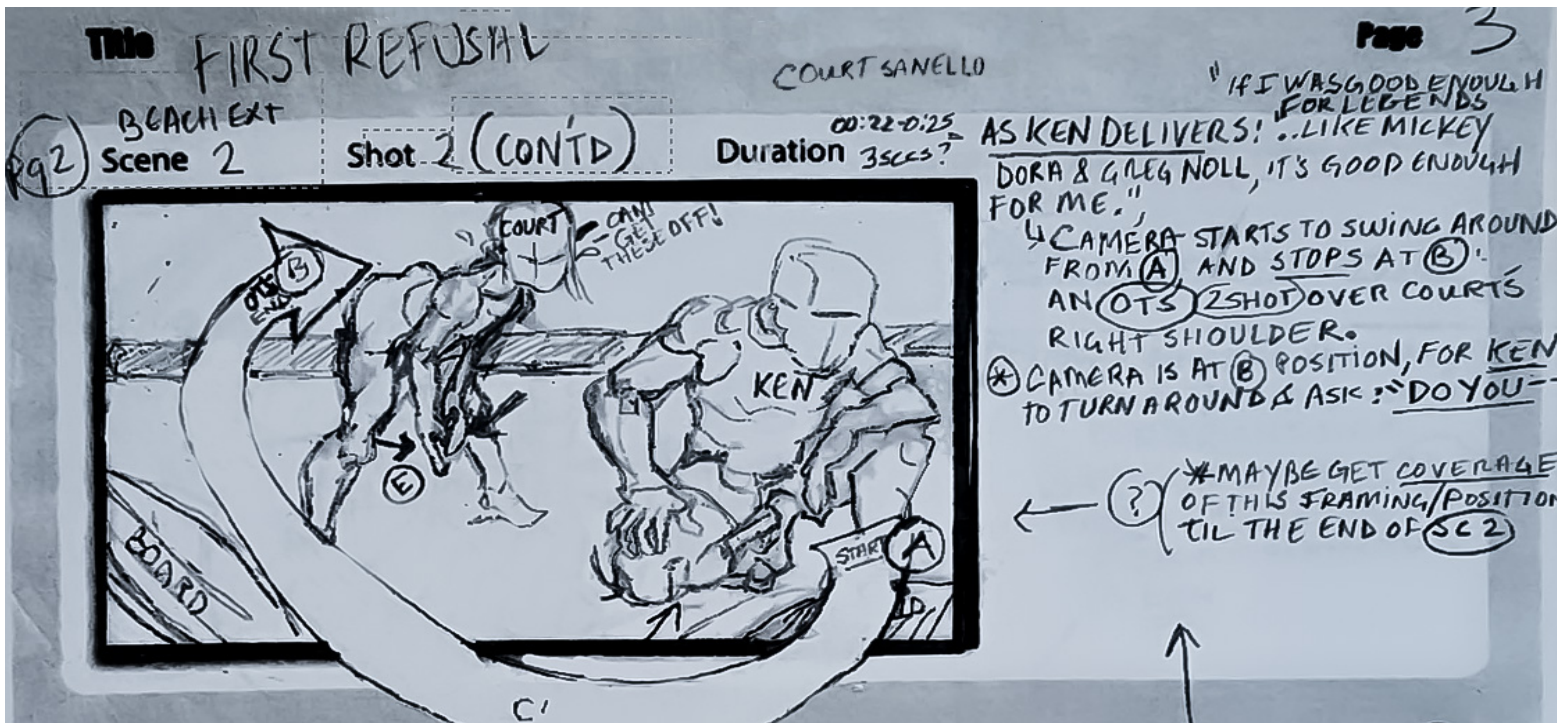 Title FIRST REFUSAL
COURT SANELLO
Page 3
Pg2
BEACH EXT
Scene 2
Shot 2 (CON'TD)
00:22-0:25
Duration 3secs?
"If I WAS GOOD ENOUGH
FOR LEGENDS
AS KEN DELIVERS: "..LIKE MICKEY
DORA & GREG NOLL, IT'S GOOD ENOUGH
FOR ME.",
CAMERA STARTS TO SWING AROUND
FROM A AND STOPS AT B:
AN OTS 2SHOT OVER COURT'S
RIGHT SHOULDER.
* CAMERA IS AT B POSITION, FOR KEN
TO TURN AROUND & ASK: "DO YOU--
? *MAYBE GET COVERAGE
OF THIS FRAMING/POSITION
TIL THE END OF SC 2
COURT
CAN'T
GET
THESE OFF!
B
OTS
END
KEN
E
BOARD
START A
C'